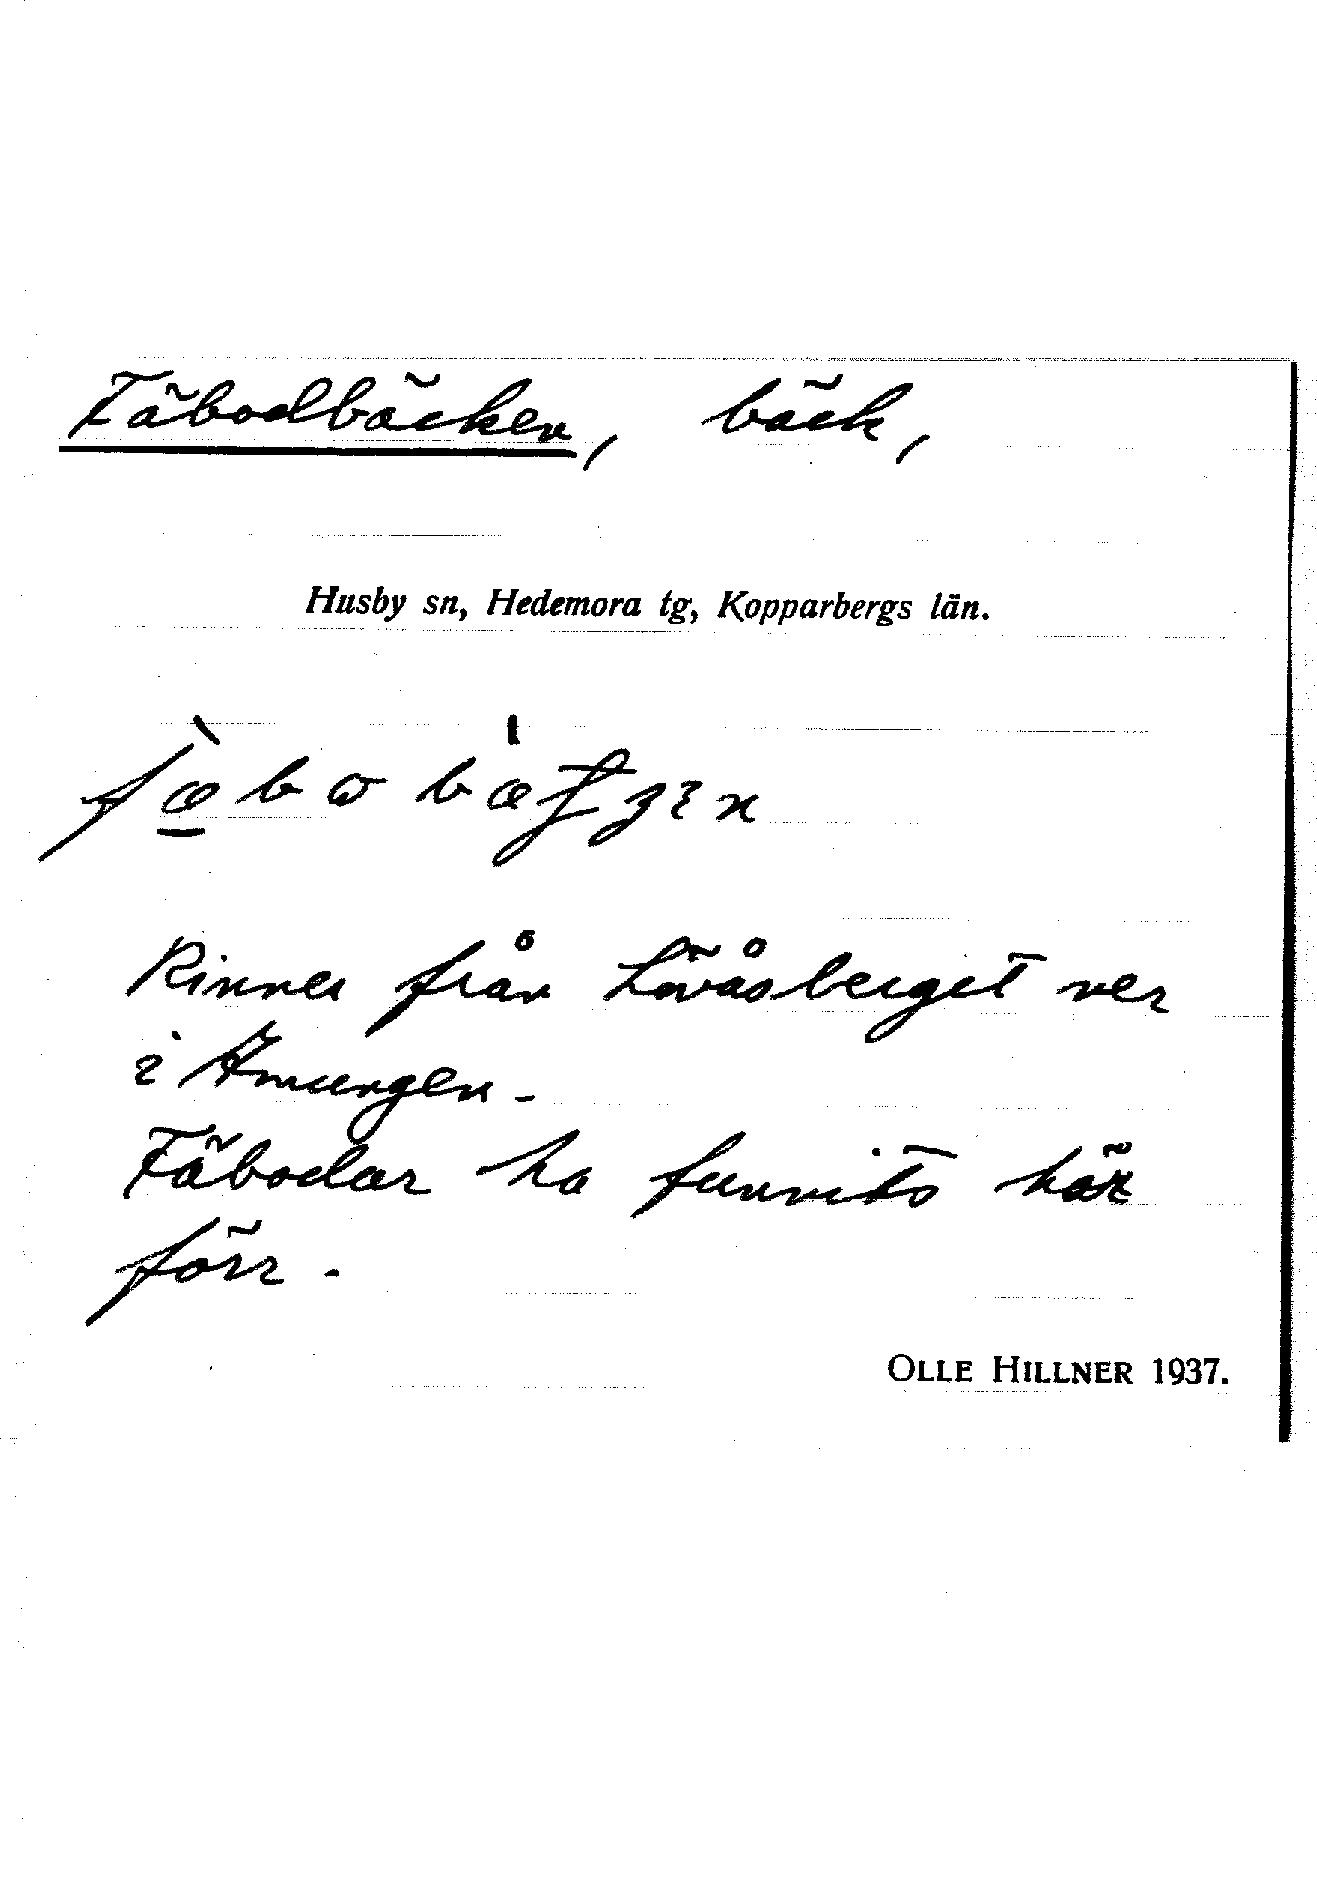 Fäbodbäcken, bäck,
Husby sn, Hedemora tg, Kopparbergs län.
Rinner från Lövåsberget ner
i Amungen -
Fäbodar ha funnits här
förr -
OLLE HILLNER 1937.